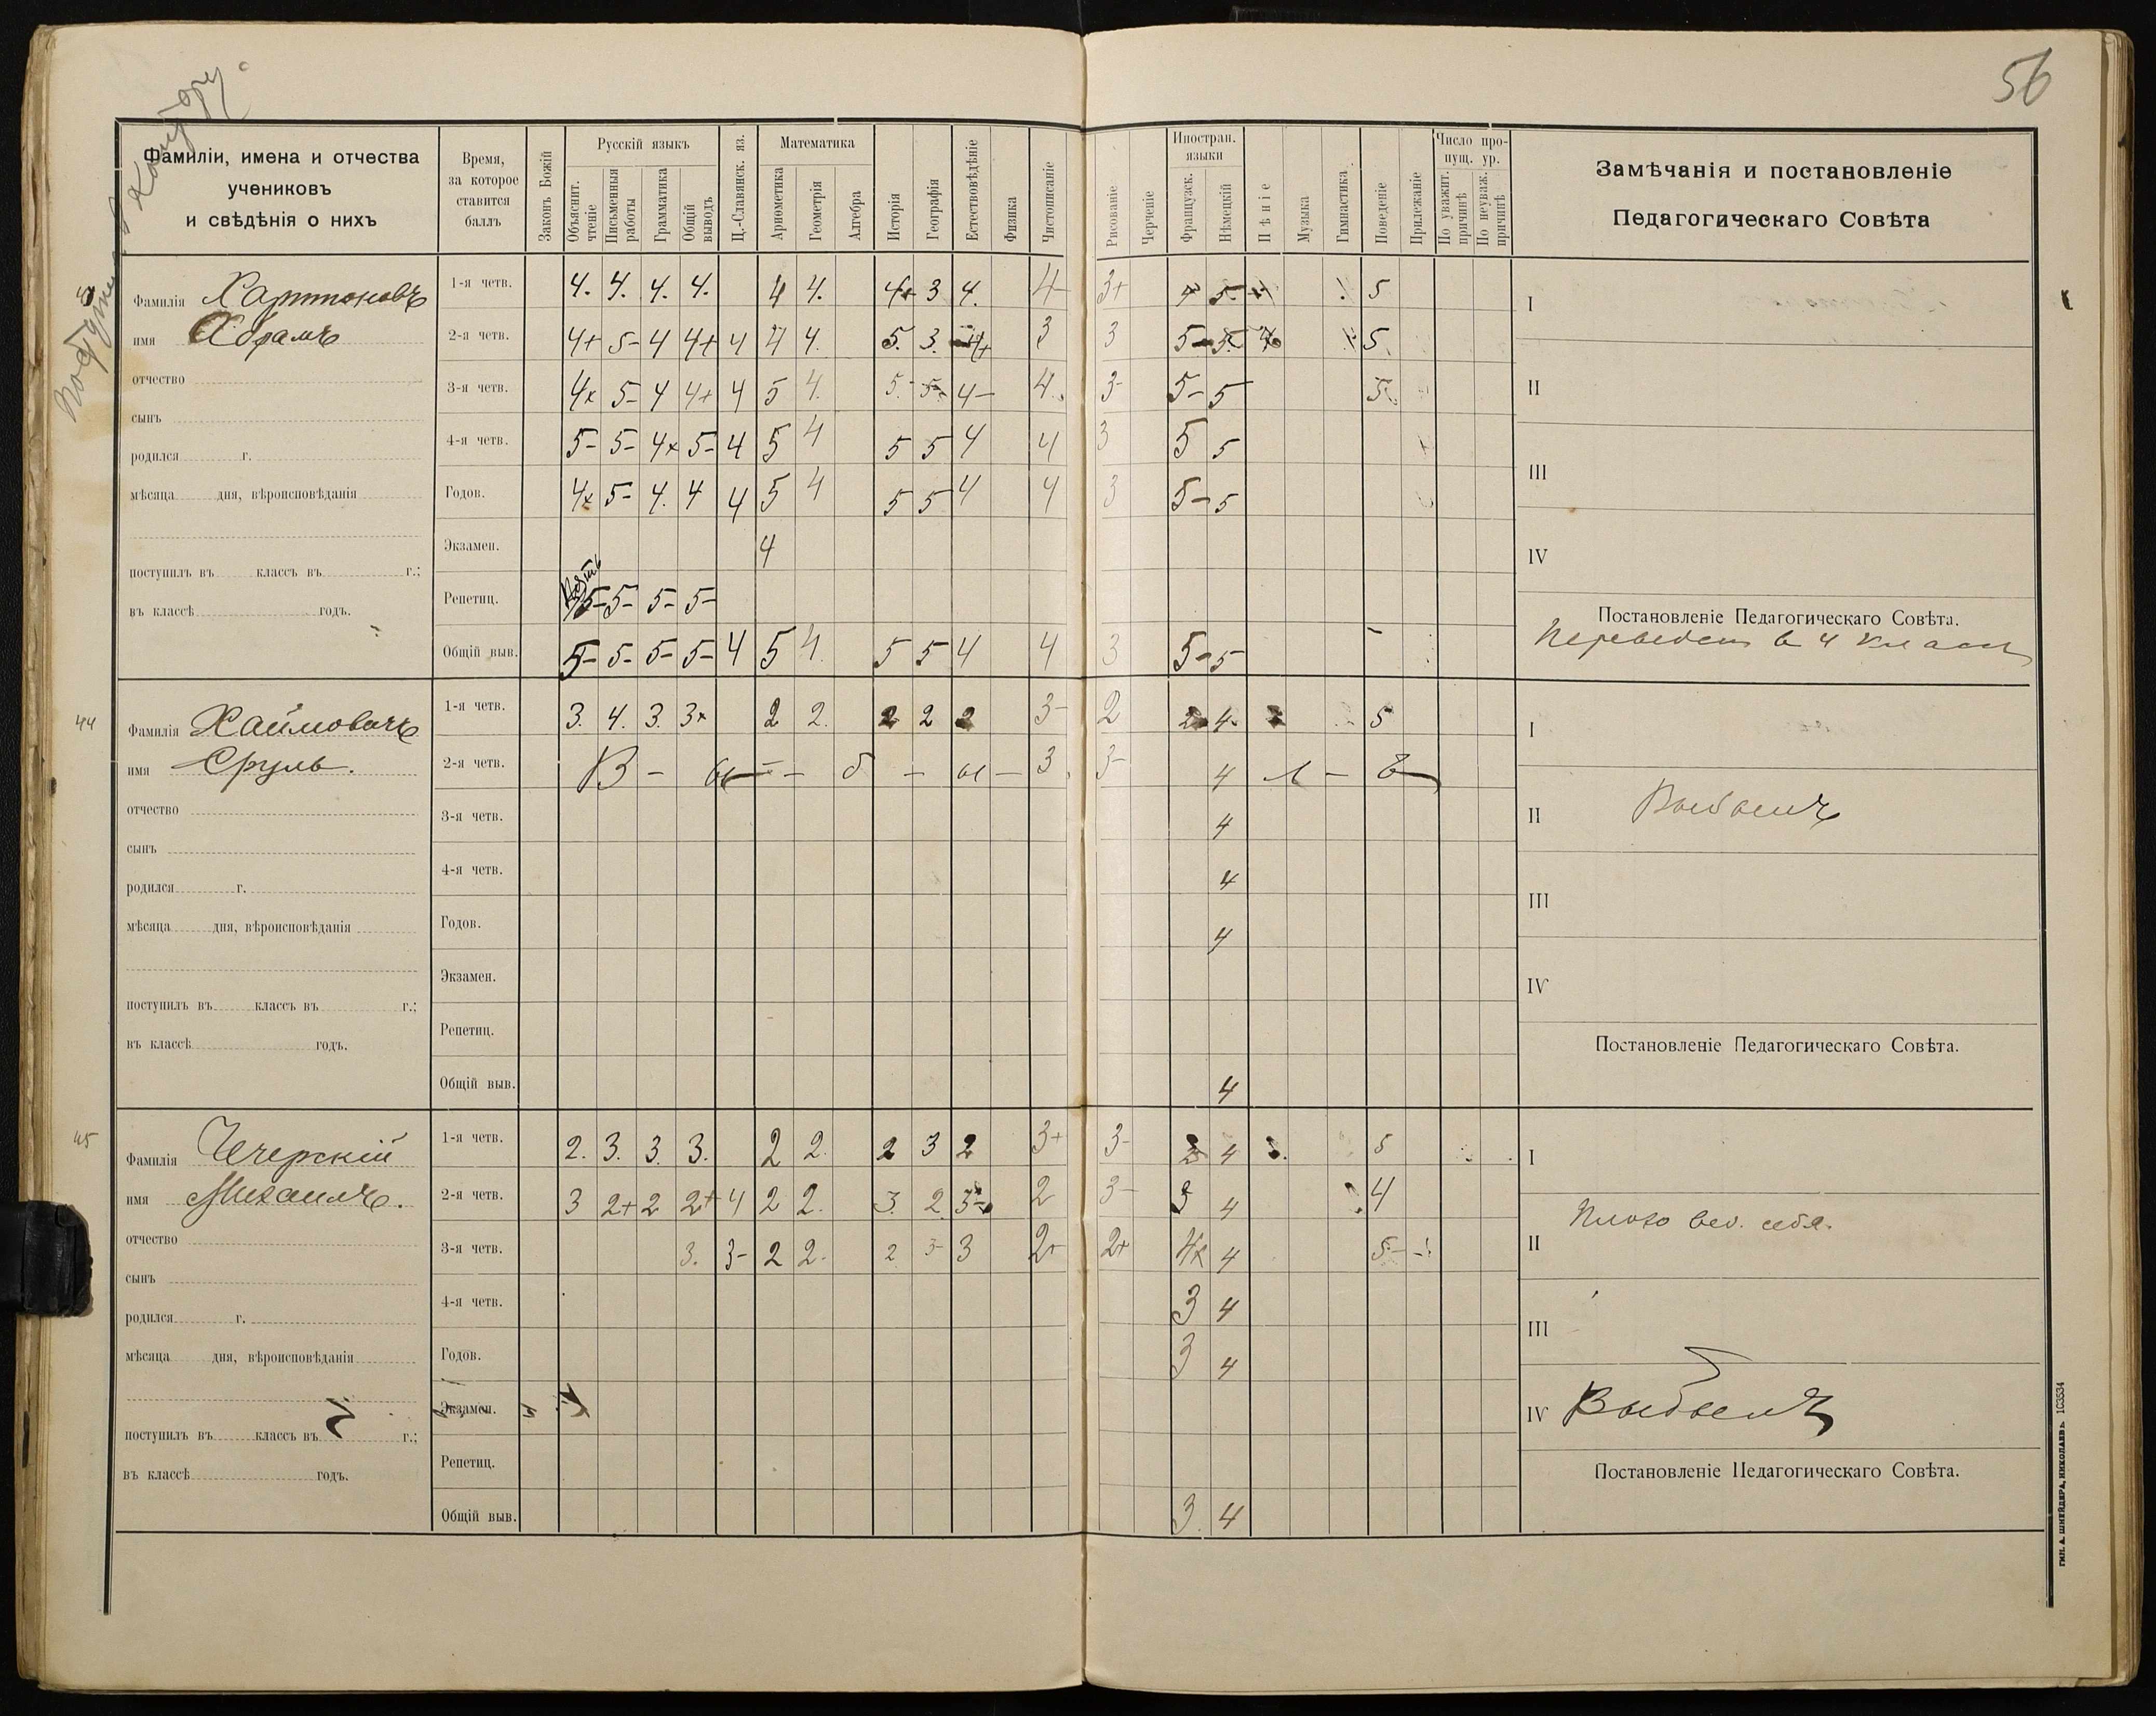 56
Фамиліи, имена и отчества
учениковъ
и свѣдѣнія о нихъ
Время,
за которое
ставится
баллъ
Законъ Божій
Русскій языкъ
Объяснит.
чтеніе
Письменныя
работы
Грамматика
Общій
выводъ
Ц.-Славянск. яз.
Математика
Ариѳметика
Геометрія
Алгебра
Исторія
Географія
Естествовѣдѣніе
Физика
Чистописаніе
Рисованіе
Черченіе
Иностран.
языки
Французск.
Нѣмецкій
Пѣніе
Музыка
Гимнастика
Поведеніе
Прилежаніе
Число про-
пущ. ур.
По уважит.
причинѣ
По неуваж.
причинѣ
Замѣчанія и постановленіе
Педагогическаго Совѣта
Фамилія Харитоновъ
имя Абрамъ
отчество
сынъ
родился г.
мѣсяца дня, вѣроисповѣданія
поступилъ въ классъ въ г.;
въ классѣ годъ.
1-я четв. 4. 4. 4. 4. 4 4. 4+ 3 4. 4- 3+ 4 5- 5
2-я четв. 4+ 5- 4 4+ 4 4 4. 5. 3. 4+ 3 3 5- 5
3-я четв. 4+ 5- 4 4+ 4 5 4. 5- 5- 4- 4. 3- 5- 5 5
4-я четв. 5- 5- 4+ 5- 4 5 4 5 5 4 4 3 5 5
Годов. 4+ 5- 4. 4 4 5 4 5 5 4 4 3 5- 5
Экзамен. 4
Репетиц. 5- 5- 5- 5-
Общій выв. 5- 5- 5- 5- 4 5 4. 5 5 4 4 3 5- 5
I
II
III
IV
Постановленіе Педагогическаго Совѣта.
Переведен в 4 класс
44
Фамилія Хаимовичъ
имя Сруль.
отчество
сынъ
родился г.
мѣсяца дня, вѣроисповѣданія
поступилъ въ классъ въ г.;
въ классѣ годъ.
1-я четв. 3. 4. 3. 3+ 2 2. 2 2 2 3- 2 2 4. 5
2-я четв. В - ы - - б - ы - 3. 3- 4 л - ъ
3-я четв. 4
4-я четв. 4
Годов. 4
Экзамен.
Репетиц.
Общій выв. 4
I
II Выбылъ
III
IV
Постановленіе Педагогическаго Совѣта.
45
Фамилія Чечерскій
имя Михаилъ.
отчество
сынъ
родился г.
мѣсяца дня, вѣроисповѣданія
поступилъ въ классъ въ г.;
въ классѣ годъ.
1-я четв. 2. 3. 3. 3. 2 2. 2 3 2 3+ 3- 4 3. 5
2-я четв. 3 2+ 2 2+ 4 2 2. 3. 2 3- 2 3- 3 4 4
3-я четв. 3. 3- 2 2- 2 3- 3 2+ 2+ 4 5-
4-я четв. 3 4
Годов. 3 4
Экзамен.
Репетиц.
Общій выв. 3. 4
I
Плохо вел. себя.
II
III
IV Выбылъ
Постановленіе Педагогическаго Совѣта.
ТИП. А. ШНЕЙДЕРА, НИКОЛАЕВЪ. 103534